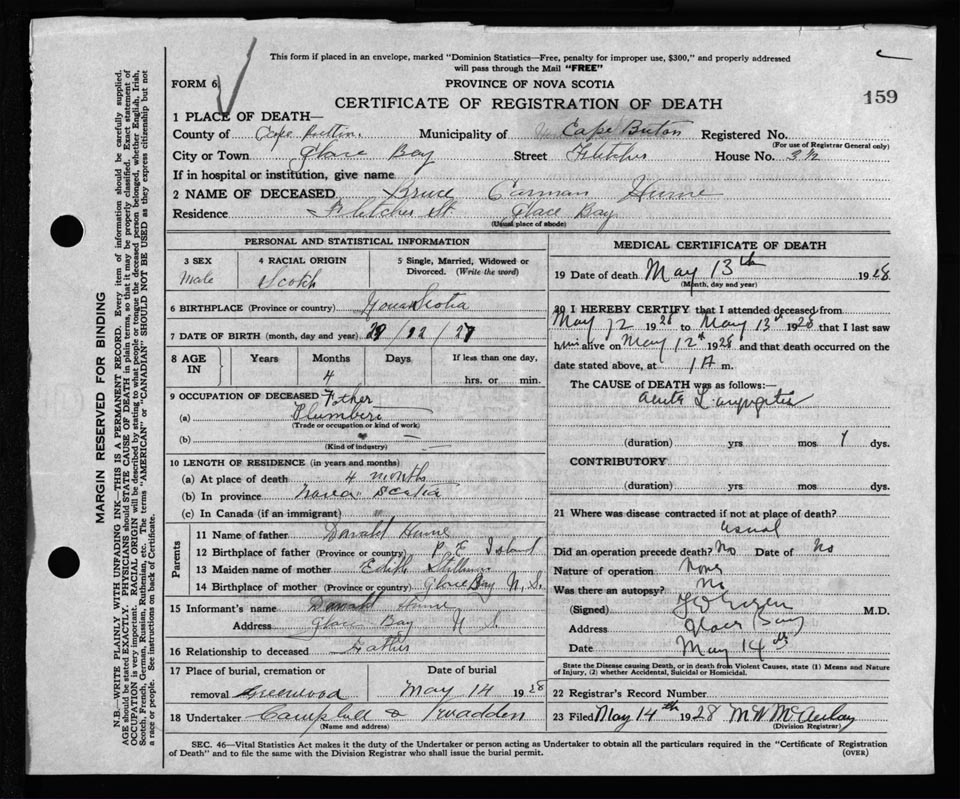 This form if placed in an envelope, marked "Dominion Statistics—Free, penalty for improper use, $300," and properly addressed
will pass through the Mail "FREE"
FORM 6
PROVINCE OF NOVA SCOTIA
CERTIFICATE OF REGISTRATION OF DEATH
159
1 PLACE OF DEATH—
County of Cape Breton. Municipality of Cape Breton Registered No.
(For use of Registrar General only)
City or Town Glace Bay Street Fletcher House No. 3½
If in hospital or institution, give name
2 NAME OF DECEASED Bruce Carman Hume
Residence Fletcher St. Glace Bay
(Usual place of abode)
PERSONAL AND STATISTICAL INFORMATION
3 SEX Male
4 RACIAL ORIGIN Scotch
5 Single, Married, Widowed or Divorced. (Write the word)
6 BIRTHPLACE (Province or country) Nova Scotia
7 DATE OF BIRTH (month, day and year) /12/27
8 AGE IN Years Months 4 Days If less than one day, hrs. or min.
9 OCCUPATION OF DECEASED Father
(a) Plumber
(Trade or occupation or kind of work)
(b)
(Kind of industry)
10 LENGTH OF RESIDENCE (in years and months)
(a) At place of death 4 months
(b) In province Nova Scotia
(c) In Canada (if an immigrant)
Parents
11 Name of father Donald Hume
12 Birthplace of father (Province or country) P. E. Island
13 Maiden name of mother Edith
14 Birthplace of mother (Province or country) Glace Bay N. S.
15 Informant's name Donald Hume
Address Glace Bay N S
16 Relationship to deceased Father
17 Place of burial, cremation or removal Greenwood
Date of burial May 14 1928
18 Undertaker Campbell &
(Name and address)
MEDICAL CERTIFICATE OF DEATH
19 Date of death May 13th 1928
(Month, day and year)
20 I HEREBY CERTIFY that I attended deceased from
May 12 1928 to May 13th 1928 that I last saw
him alive on May 12th 1928 and that death occurred on the
date stated above, at 1 A m.
The CAUSE of DEATH was as follows:—
acute Laryngitis
(duration) yrs mos 1 dys.
CONTRIBUTORY
(duration) yrs. mos. dys.
21 Where was disease contracted if not at place of death?
usual
Did an operation precede death? No Date of No
Nature of operation None
Was there an autopsy? No
(Signed) M.D.
Address Glace Bay
Date May 14th
State the Disease causing Death, or in death from Violent Causes, state (1) Means and Nature
of Injury, (2) whether Accidental, Suicidal or Homicidal.
22 Registrar's Record Number
23 Filed May 14th 1928 M McAulay
(Division Registrar)
SEC. 46—Vital Statistics Act makes it the duty of the Undertaker or person acting as Undertaker to obtain all the particulars required in the "Certificate of Registration
of Death" and to file the same with the Division Registrar who shall issue the burial permit.
(OVER)
MARGIN RESERVED FOR BINDING
N.B.—WRITE PLAINLY WITH UNFADING INK—THIS IS A PERMANENT RECORD. Every item of information should be carefully supplied.
AGE should be stated EXACTLY. PHYSICIANS should STATE CAUSE OF DEATH in plain terms, so that it may be properly classified. Exact statement of
OCCUPATION is very important. RACIAL ORIGIN will be described by stating to what people or tongue the deceased person belonged, whether English, Irish,
Scotch, French, German, Russian, Ruthenian, etc. The terms "AMERICAN" or "CANADIAN" SHOULD NOT BE USED as they express citizenship but not
a race or people. See instructions on back of Certificate.